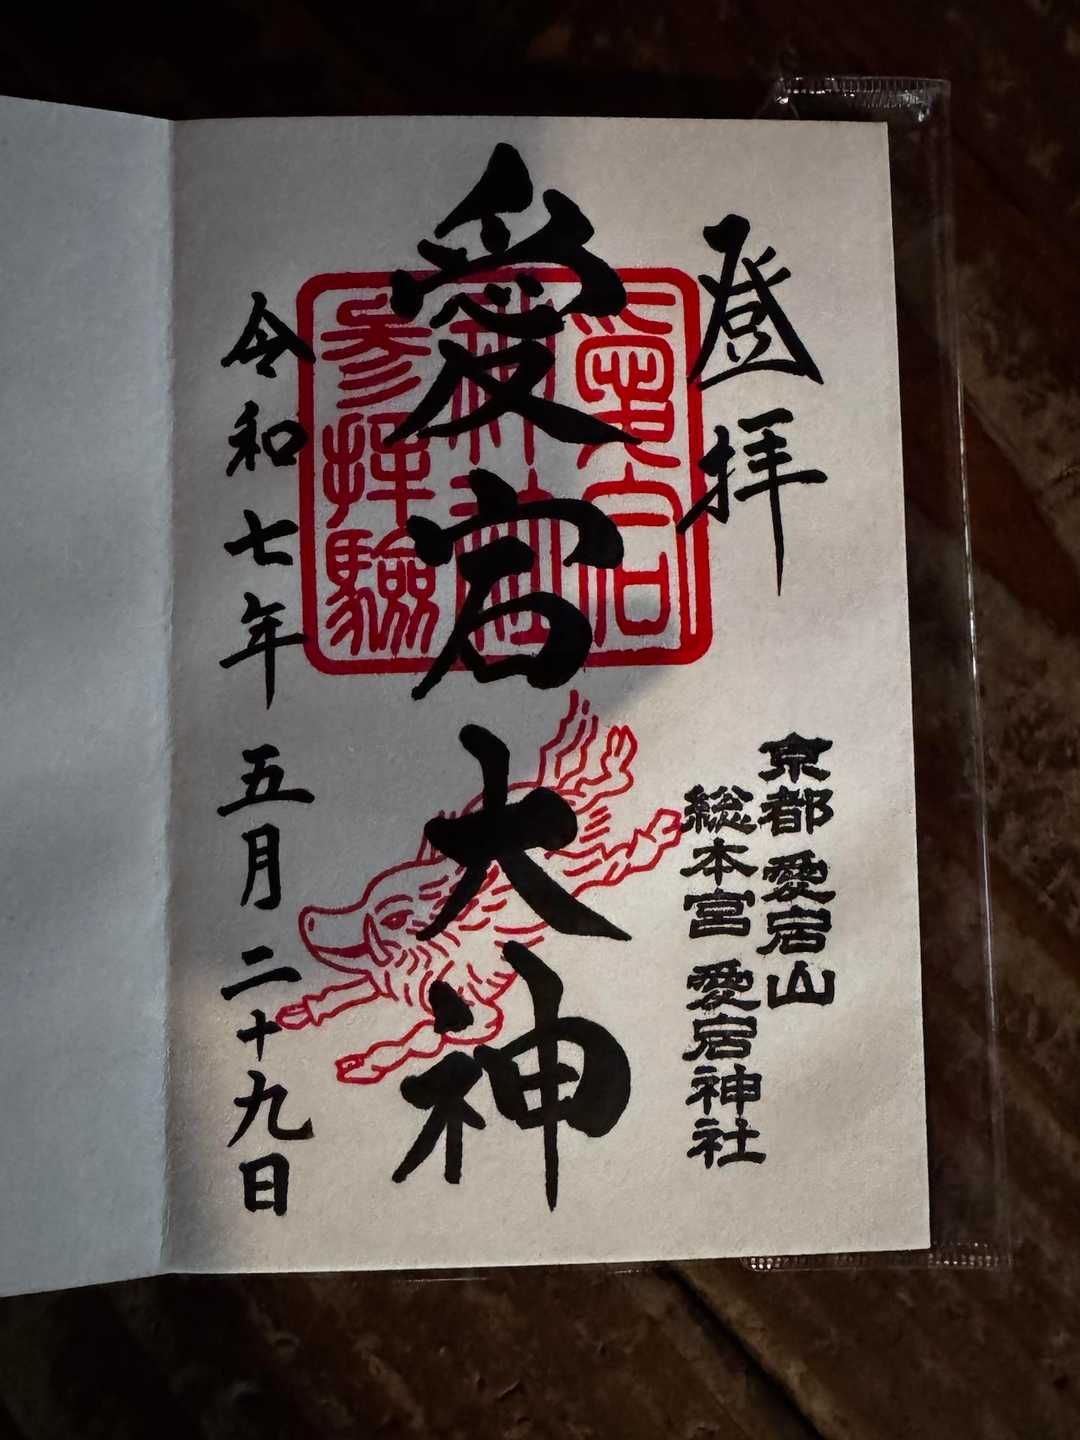 登拝
京都 愛宕山
総本宮 愛宕神社
愛宕大神
愛宕
神社
参拝験
令和七年 五月 二十九日